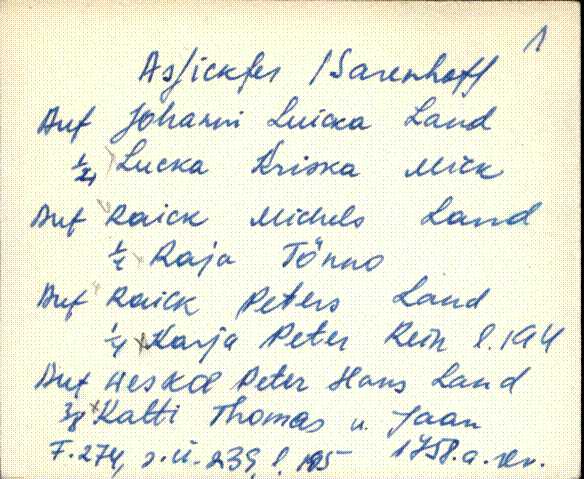 1
Asfickfer /Sarenhoff
Auf Johanni Luicka Land
Lucka Kriska Mick
Auf Raick Michels Land
Raja Tönno
Auf Raick Peters Land
1/4 Karja Peter Rein l. 194
Auf Weskæ Peter Hans Land
3/8 Katti Thomas u. Jaan
F. 274, s. ü. 239, l. 195 1758. a.